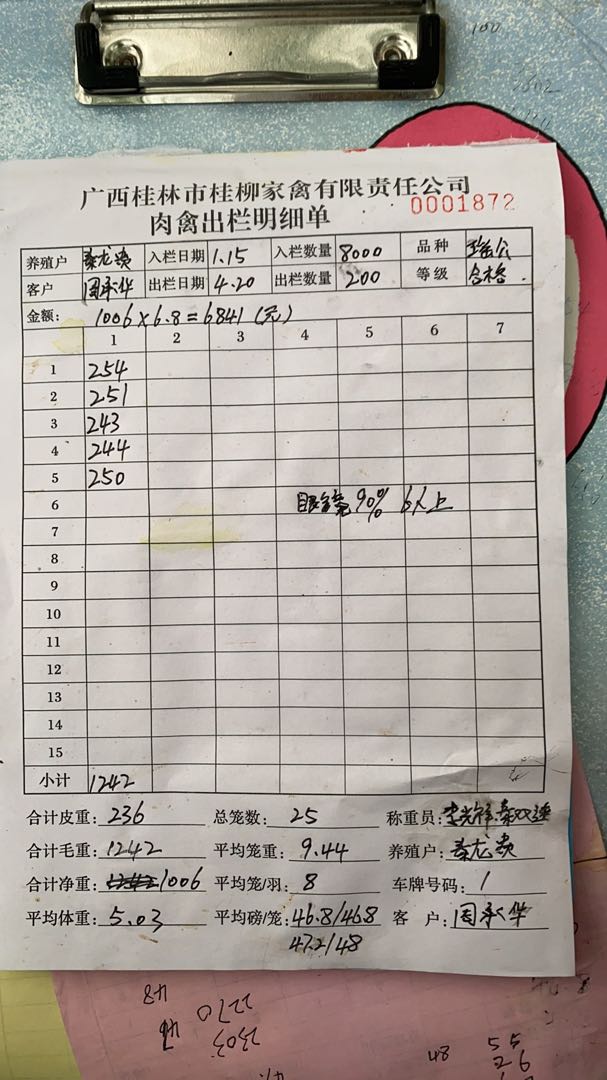 100
广西桂林市桂柳家禽有限责任公司
肉禽出栏明细单 0001872
养殖户 秦龙 入栏日期 1.15 入栏数量 8000 品种
客户 周承华 出栏日期 4.20 出栏数量 200 等级 合格.
金额: 1006×6.8=6841(元)
1 2 3 4 5 6 7
1 254
2 251
3 243
4 244
5 250
6 眼镜90% 以上
7
8
9
10
11
12
13
14
15
小计 1242
合计皮重: 236 总笼数: 25 称重员:
合计毛重: 1242 平均笼重: 9.44 养殖户: 秦龙
合计净重: 1006 平均笼/羽: 8 车牌号码: /
平均体重: 5.03 平均磅/笼: 46.8/46.8 客 户: 周承华
47.2/48
48 2270
2303
48 55
26